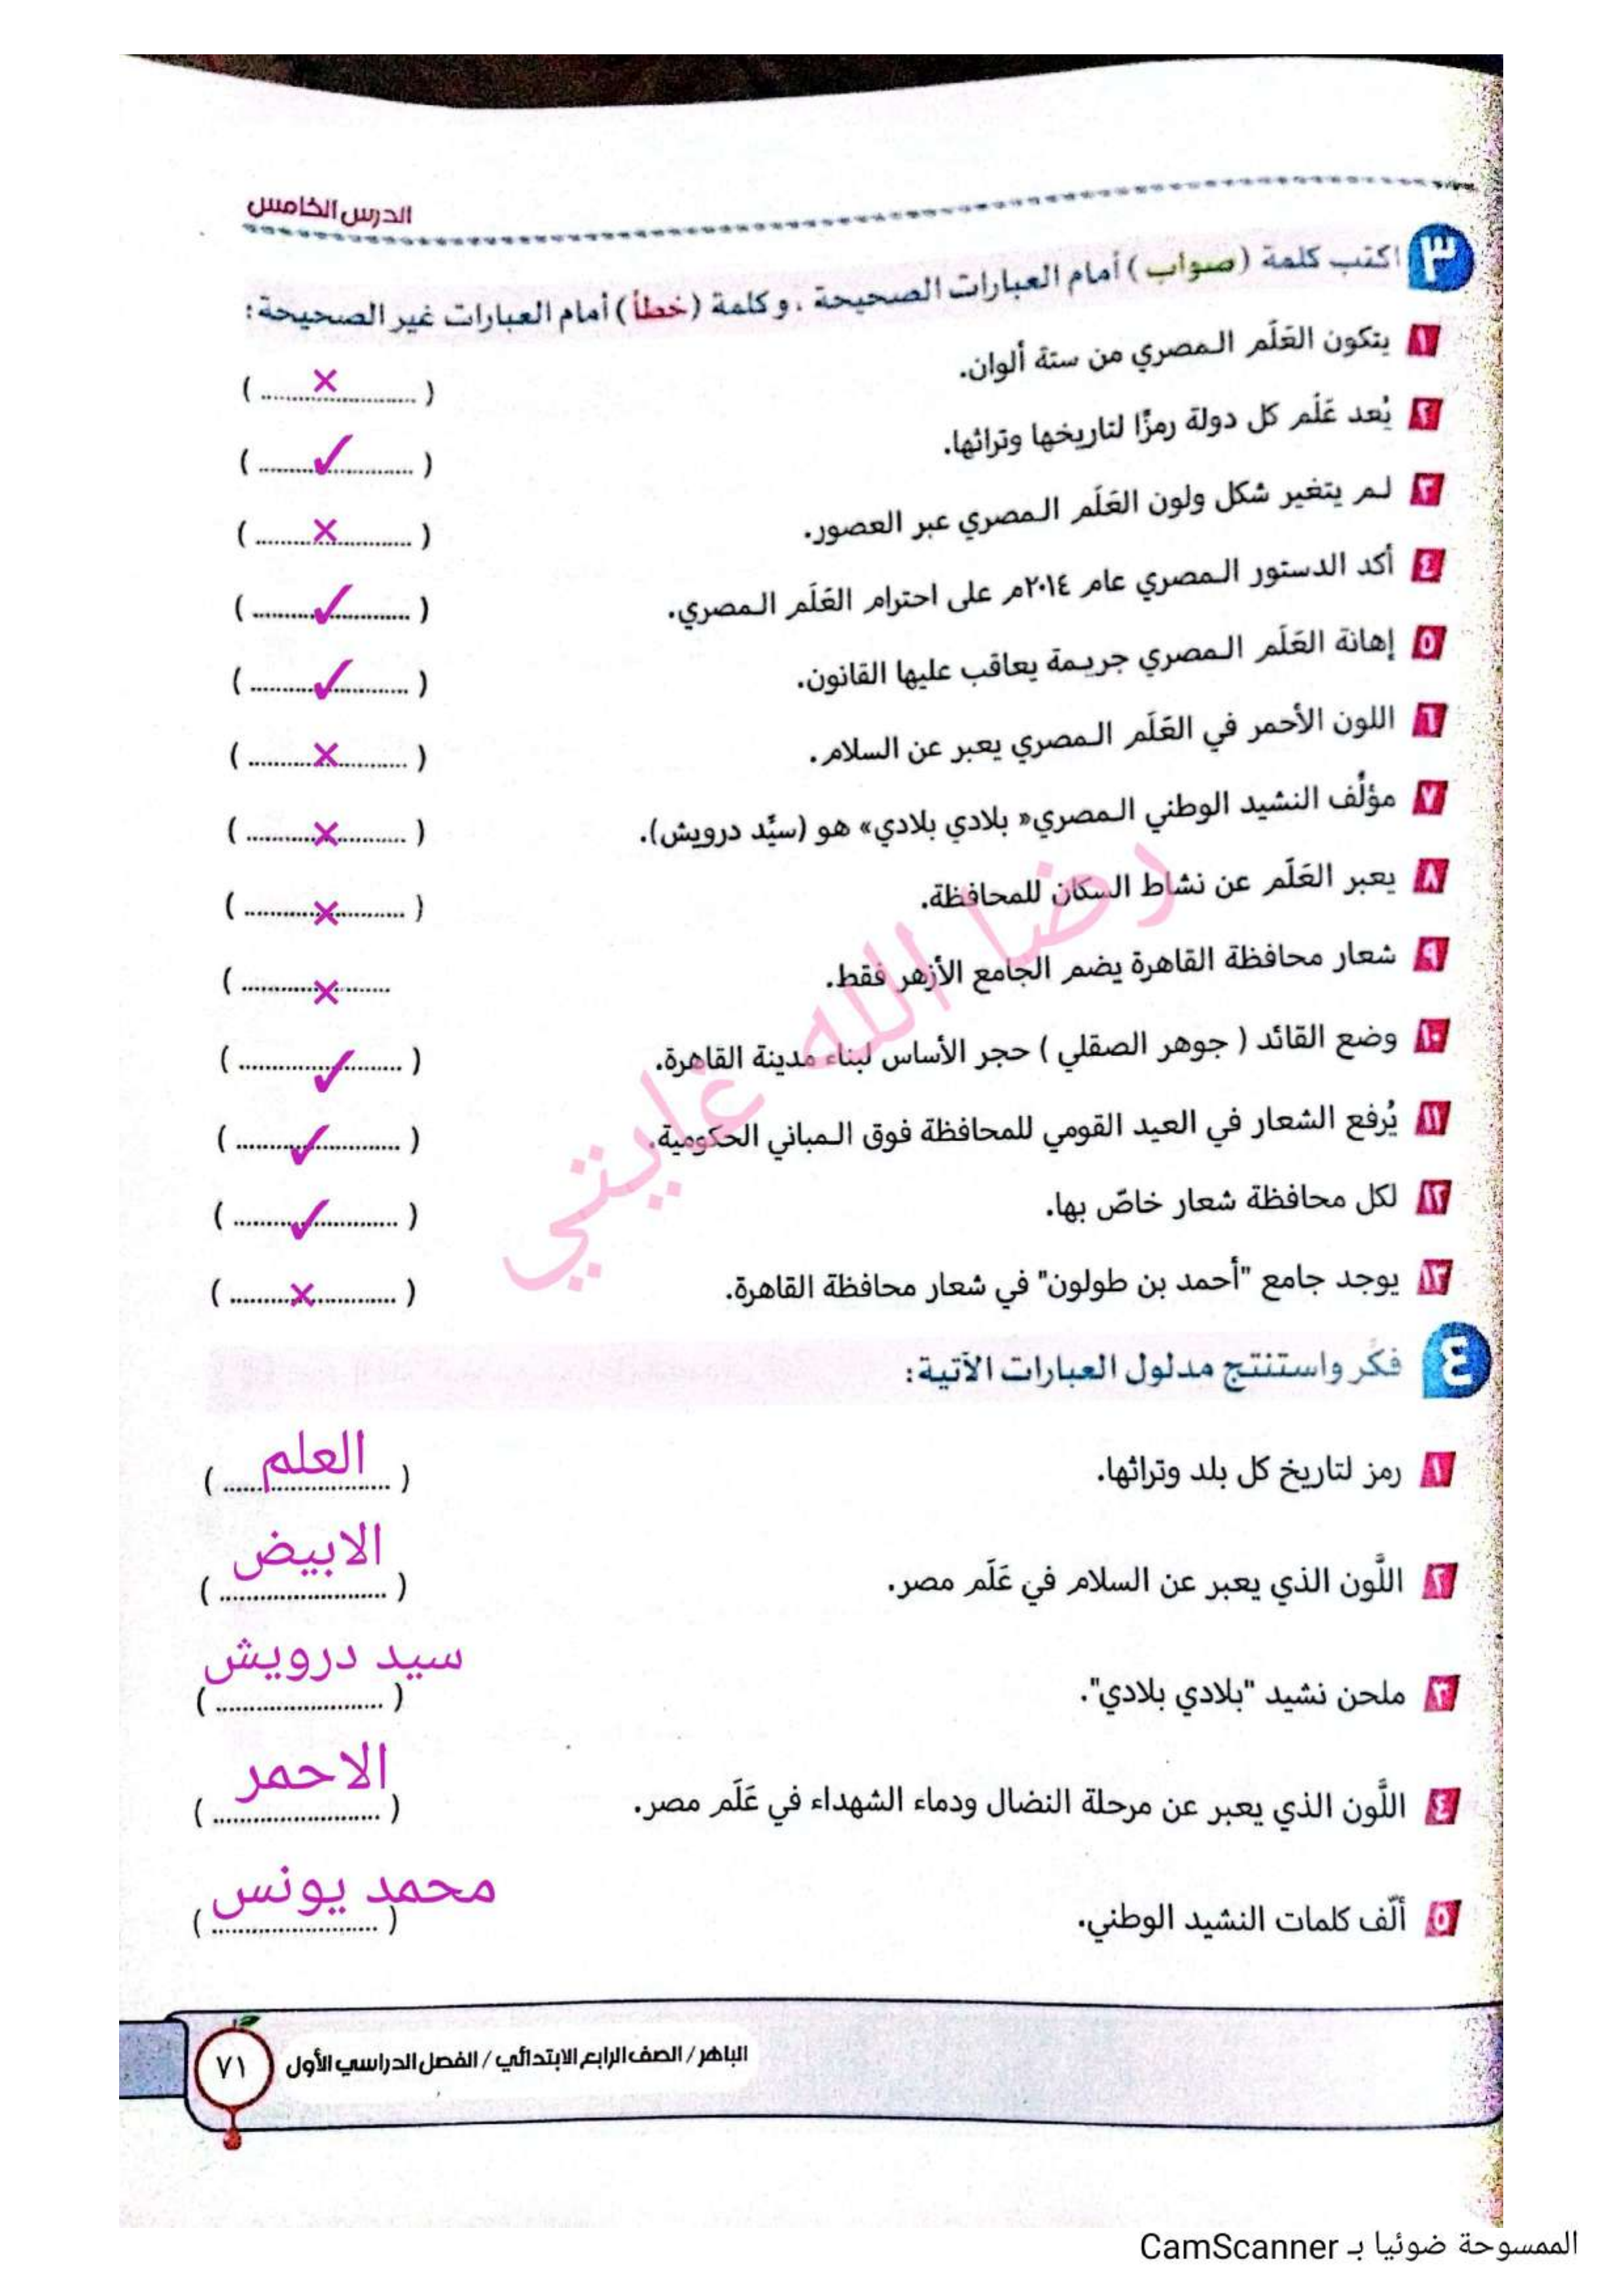 الدرس الخامس
٣ اكتب كلمة (صواب) أمام العبارات الصحيحة، وكلمة (خطأ) أمام العبارات غير الصحيحة:
١ يتكون العَلَم المصري من ستة ألوان. (×)
٢ يُعد عَلَم كل دولة رمزًا لتاريخها وتراثها. (✓)
٣ لم يتغير شكل ولون العَلَم المصري عبر العصور. (×)
٤ أكد الدستور المصري عام ٢٠١٤م على احترام العَلَم المصري. (✓)
٥ إهانة العَلَم المصري جريمة يعاقب عليها القانون. (✓)
٦ اللون الأحمر في العَلَم المصري يعبر عن السلام. (×)
٧ مؤلِّف النشيد الوطني المصري« بلادي بلادي» هو (سيِّد درويش). (×)
٨ يعبر العَلَم عن نشاط السكان للمحافظة. (×)
٩ شعار محافظة القاهرة يضم الجامع الأزهر فقط. (×
١٠ وضع القائد ( جوهر الصقلي ) حجر الأساس لبناء مدينة القاهرة. (✓)
١١ يُرفع الشعار في العيد القومي للمحافظة فوق المباني الحكومية. (✓)
١٢ لكل محافظة شعار خاصّ بها. (✓)
١٣ يوجد جامع "أحمد بن طولون" في شعار محافظة القاهرة. (×)
رضا الله غايتي
٤ فكّر واستنتج مدلول العبارات الآتية:
١ رمز لتاريخ كل بلد وتراثها. (العلم)
٢ اللَّون الذي يعبر عن السلام في عَلَم مصر. (الابيض)
٣ ملحن نشيد "بلادي بلادي". (سيد درويش)
٤ اللَّون الذي يعبر عن مرحلة النضال ودماء الشهداء في عَلَم مصر. (الاحمر)
٥ ألّف كلمات النشيد الوطني. (محمد يونس)
٧١ الباهر / الصف الرابع الابتدائي / الفصل الدراسي الأول
الممسوحة ضوئيا بـ CamScanner